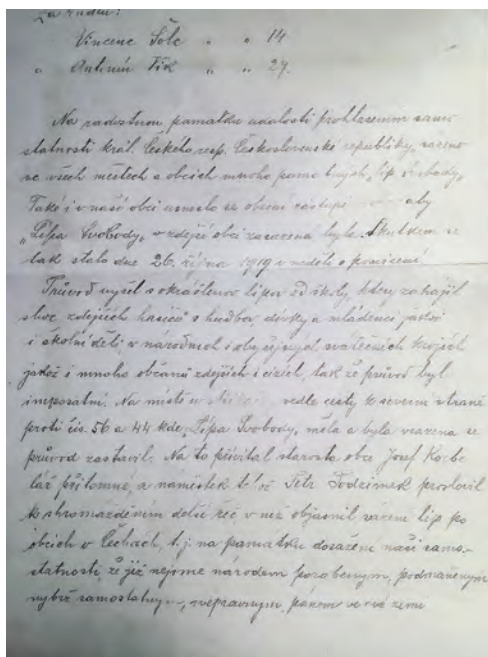 Za rudém:
Vincenc Šolc " " 14
" Antonín Fik " " 27.
Na radostnou památku události prohlášením samo
statnosti král. Českého resp. Československé republiky, sázeno
ve všech městech a obcích mnoho pamatných "lip svobody"
Také i v naší obci usneslo se obecní zastupi aby
"Lípa Svobody" v zdejší obci zasazena byla. Skutkem se
tak stalo dne 26. října 1919 v neděli o posvícení.
Průvod vyšel s okrášlenou lipou od školy, který zahájil
sbor zdejších hasičů s hudbou, dívky a mládenci jakož
i školní děti, v národních i svátečních krojích
jakož i mnoho občanů zdejších i cizích, tak že průvod byl
imposatní. Na místě vedle cesty k severní straně
proti čís. 56 a 44 kde "Lípa Svobody" měla a byla vsazena se
průvod zastavil. Na to přivítal starosta obce Josef Korbe
lář přítomné, a naměstek téhož Petr Podzimek proslovil
k shromážděním delší řeč v níž objasnil sázení lip po
obcích v Čechách, t.j. na památku dosažení naší samo-
statnosti, že již nejsme národem porobeným, podmaněným
nýbrž samostatným, svéprávným, pánem ve své zemi